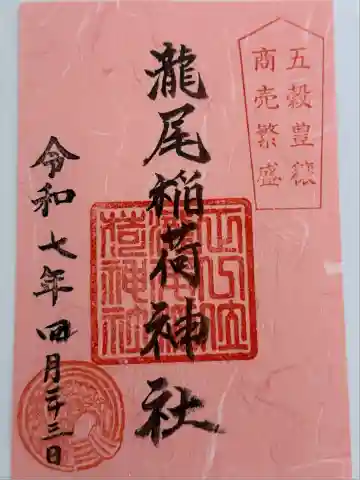 五穀豊穣
商売繁盛
瀧尾稲荷神社
令和七年四月二十三日